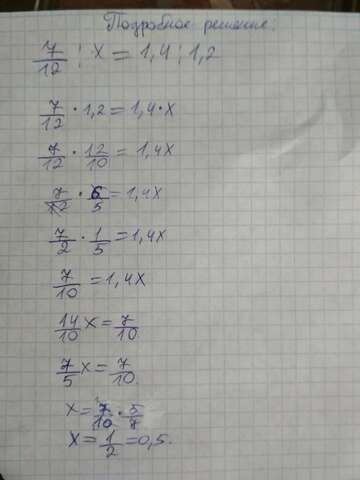 Подробное решение:
7/12 : x = 1,4 : 1,2
7/12 · 1,2 = 1,4 · x
7/12 · 12/10 = 1,4x
7/12 · 6/5 = 1,4x
7/2 · 1/5 = 1,4x
7/10 = 1,4x
14/10 x = 7/10
7/5 x = 7/10
x = 7/10 · 5/7
x = 1/2 = 0,5.